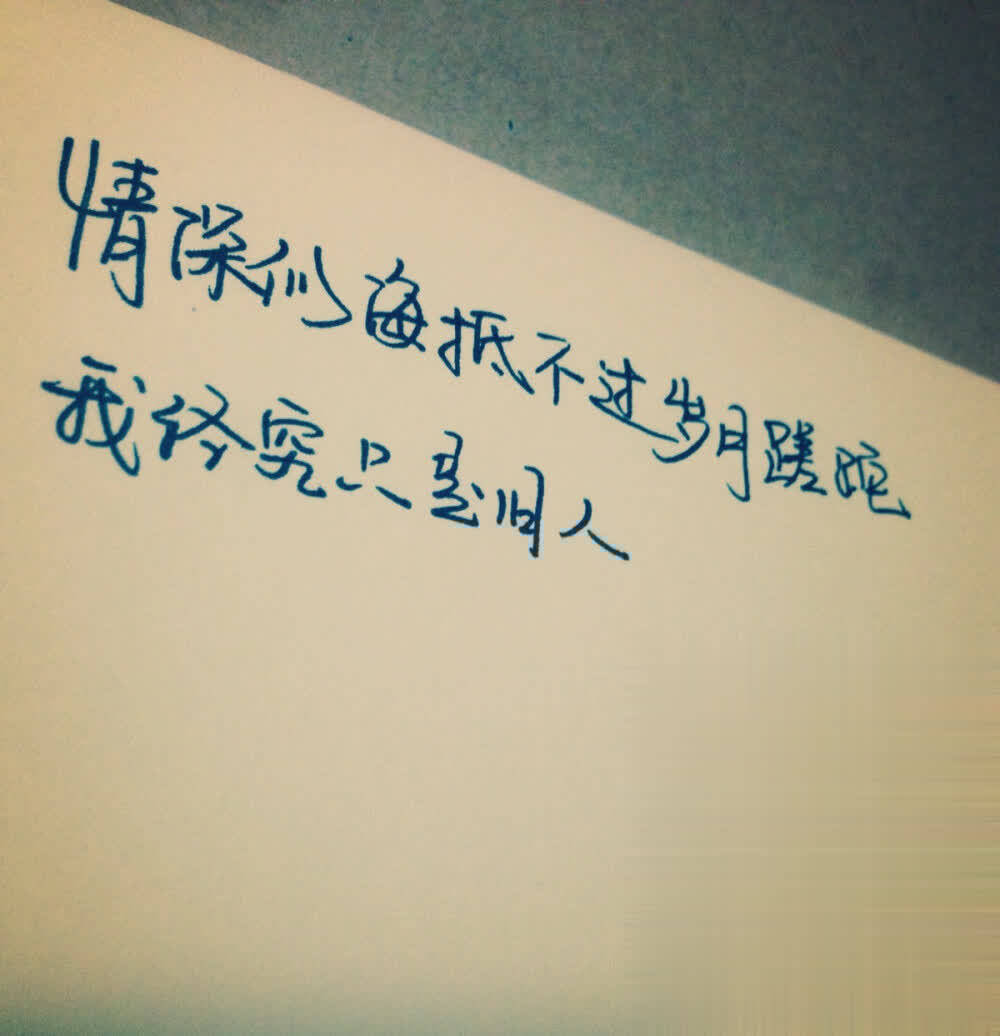 情深似海抵不过岁月蹉跎
我终究只是旧人